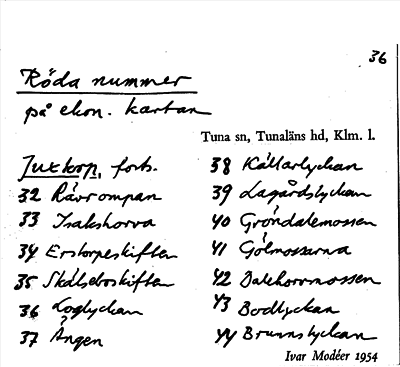 36
Röda nummer
på ekon. kartan
Tuna sn, Tunaläns hd, Klm. l.
forts.
32 Rävrompan
33 Isakshorva
34 Erstorpeskiften
35 Skälsboskiften
36 Loglyckan
37 Ängen
38 Källarlyckan
39 Lagårdslyckan
40 Gröndalemossen
41 Gölmossarna
42 Dalehorvmossen
43 Bodlyckan
44 Brunnslyckan
Ivar Modéer 1954